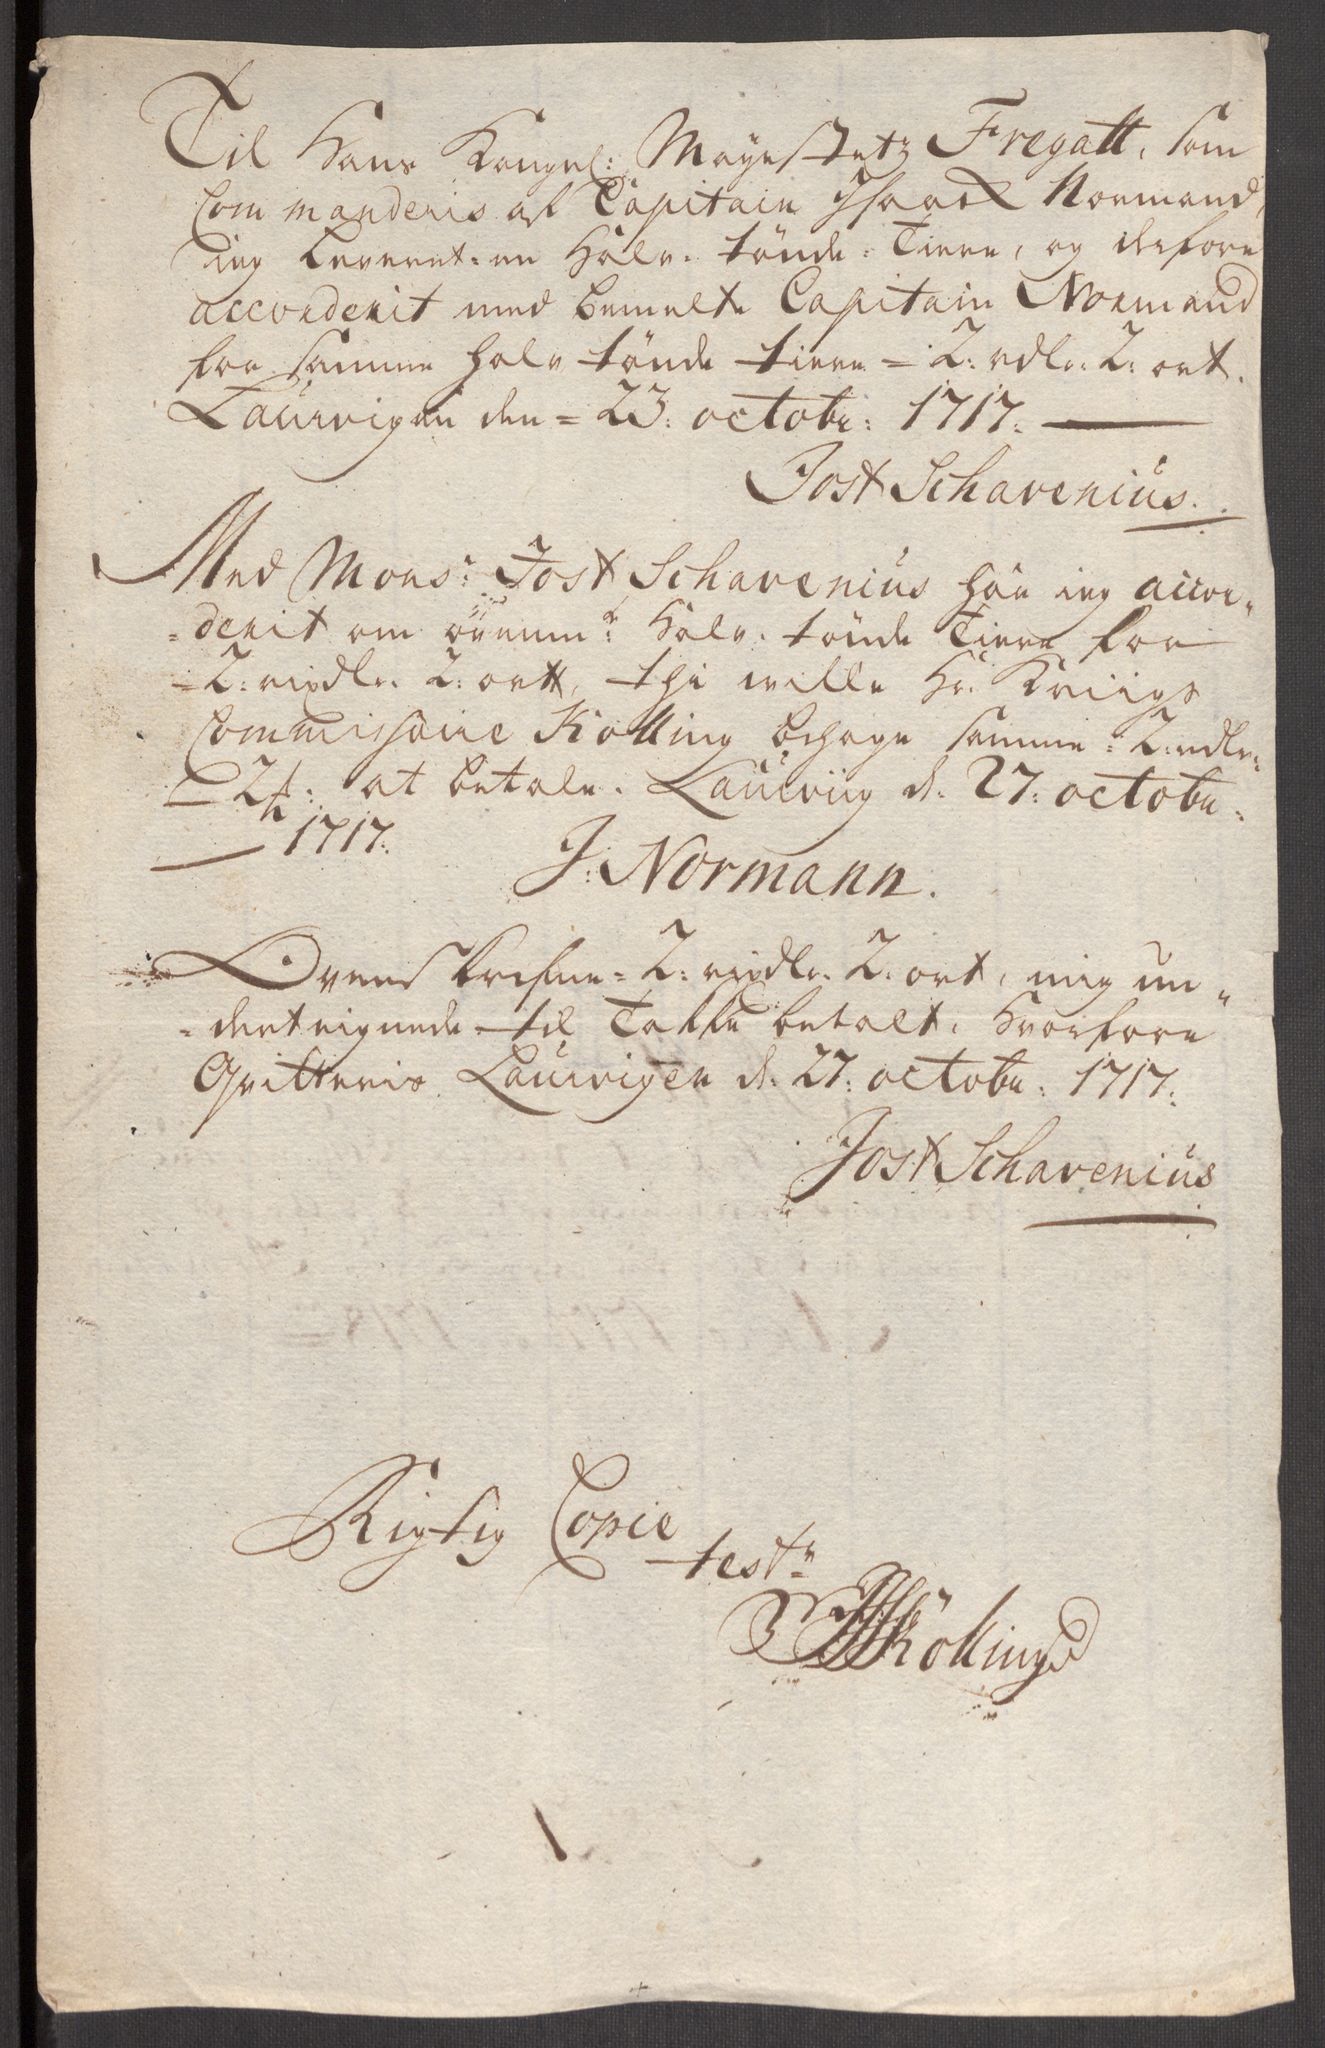 Til Hans Kongel: Mayestetz Fregatt, som
Commanderis af Capitain Isaack Normand,
ieg Leveret en Halv tönde Tiere, og derfore
accorderit med bemelte Capitain Normand
for samme halv tönde tiere = 2: rdlr: 2: ort.
Laurvigen den = 23: octobr: 1717:
Jost Schavenius.
Med Monsr: Jost Schavenius har ieg accor„
„derit om ovenmte Halv tönde Tiere for
2: rixdlr. 2: ortt, thi wille Hr. Kriigs
Commissarie Kolling behage samme 2: rdlr:
2 ort: at betale. Laurviig d: 27: octobr:
1717:
J: Normann.
Ovenskrefne 2: rixdlr. 2: ort, mig un„
„derteignede til Takke betalt, Hvorfore
Qvitteris Laurvigen d: 27: octobr: 1717:
Jost Schavenius
Rigtig Copie
test:
Kölling